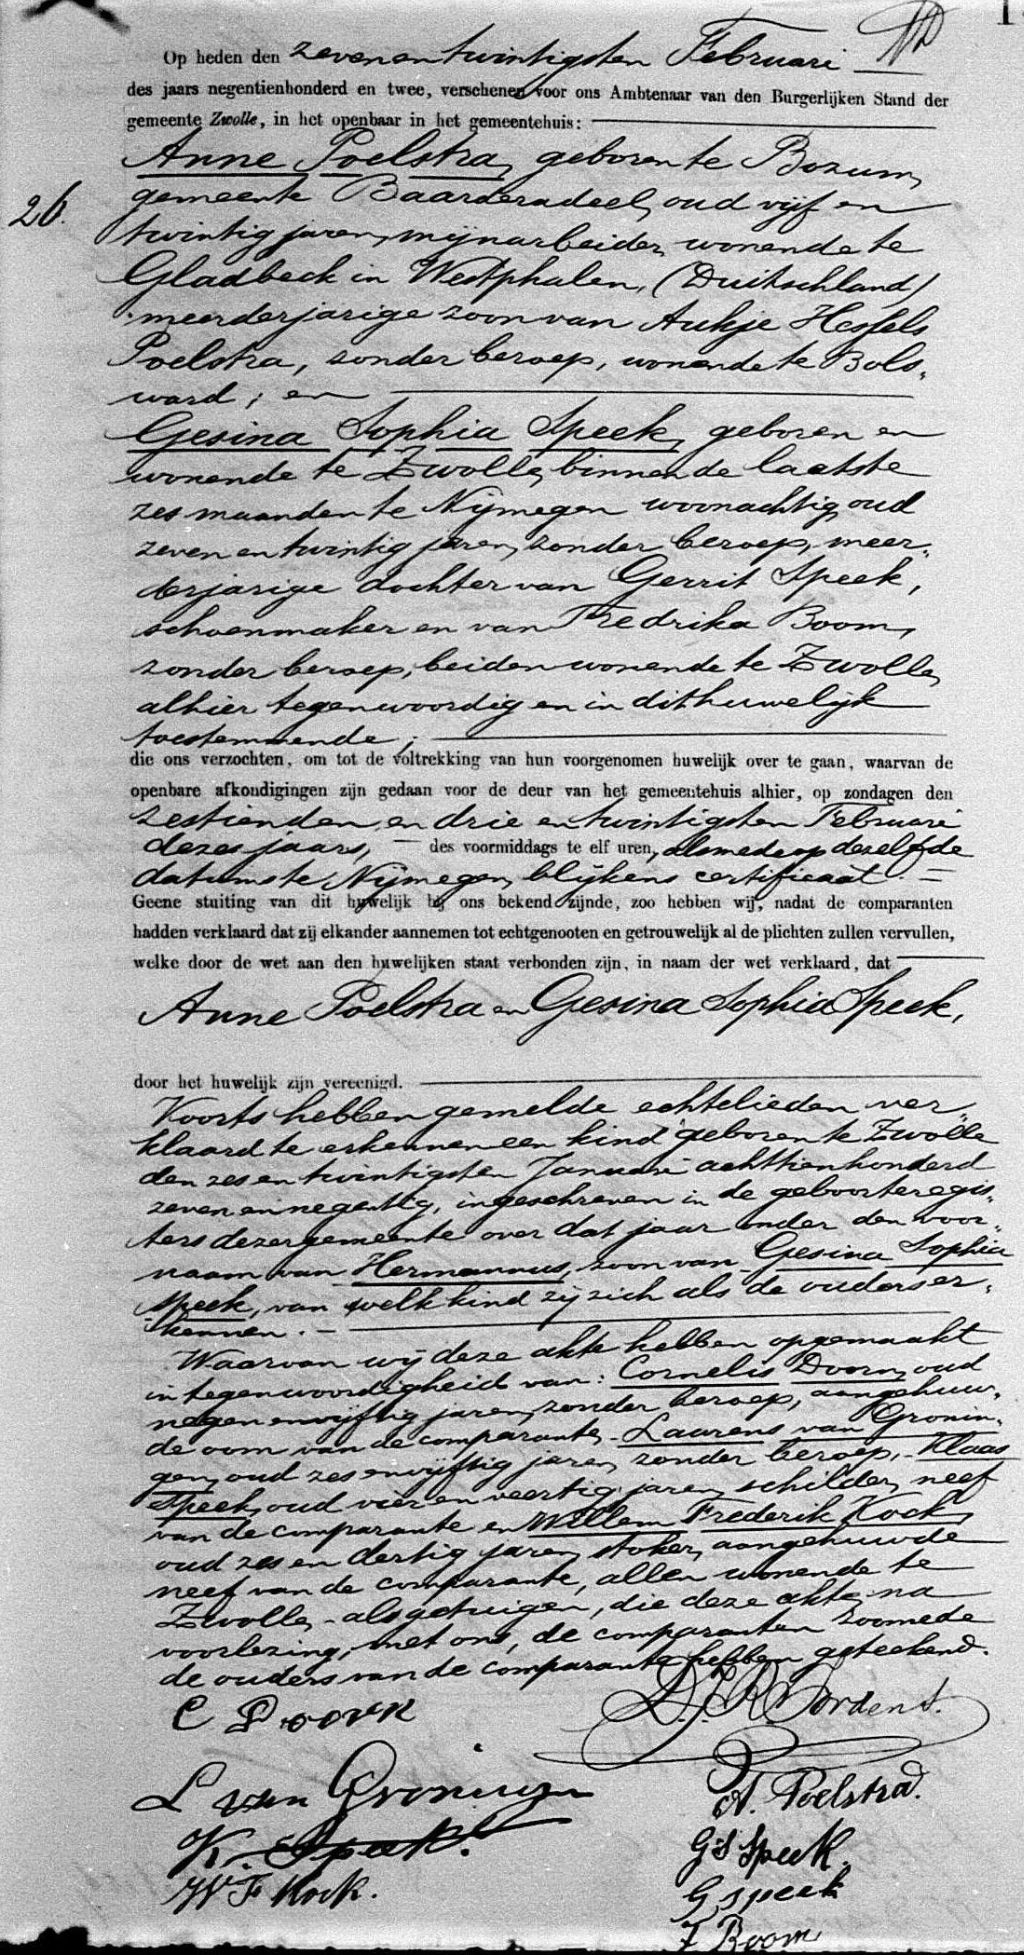 Op heden den zevenentwintigsten Februari
des jaars negentienhonderd en twee, verschenen voor ons Ambtenaar van den Burgerlijken Stand der
gemeente Zwolle, in het openbaar in het gemeentehuis:
Anne Poelstra, geboren te Bozum,
26.
gemeente Baarderadeel, oud vijf en
twintig jaren, mijnarbeider, wonende te
Gladbeck in Westphalen, (Duitschland)
meerderjarige zoon van Aukje Hessels
Poelstra, zonder beroep, wonende te Bols-
ward; en
Gesina Sophia Speek, geboren en
wonende te Zwolle, binnen de laatste
zes maanden te Nijmegen woonachtig, oud
zeven en twintig jaren, zonder beroep, meer-
derjarige dochter van Gerrit Speek,
schoenmaker en van Fredrika Boom,
zonder beroep, beiden wonende te Zwolle,
alhier tegenwoordig en in dit huwelijk
toestemmende;
die ons verzochten, om tot de voltrekking van hun voorgenomen huwelijk over te gaan, waarvan de
openbare afkondigingen zijn gedaan voor de deur van het gemeentehuis alhier, op zondagen den
zestienden en drie en twintigsten Februari
dezes jaars, des voormiddags te elf uren, alsmede op dezelfde
datums te Nijmegen, blijkens certificaat
Geene stuiting van dit huwelijk bij ons bekend zijnde, zoo hebben wij, nadat de comparanten
hadden verklaard dat zij elkander aannemen tot echtgenooten en getrouwelijk al de plichten zullen vervullen,
welke door de wet aan den huwelijken staat verbonden zijn, in naam der wet verklaard, dat
Anne Poelstra en Gesina Sophia Speek,
door het huwelijk zijn vereenigd.
Voorts hebben gemelde echtelieden ver-
klaard te erkennen een kind geboren te Zwolle
den zes en twintigsten Januari achttienhonderd
zeven en negentig, ingeschreven in de geboorteregis-
ters dezer gemeente over dat jaar onder den voor-
naam van Hermannus, zoon van Gesina Sophia
Speek, van welk kind zij zich als de ouders er-
kennen.
Waarvan wij deze akte hebben opgemaakt
in tegenwoordigheid van: Cornelis Doorn, oud
negen en vijftig jaren, zonder beroep, aangehuw-
de oom van de comparante, Laurens van Gronin-
gen, oud zes en vijftig jaren, zonder beroep, Klaas
Speek, oud vier en veertig jaren, schilder, neef
van de comparante en Willem Frederik Kock,
oud zes en dertig jaren, stoker, aangehuwde
neef van de comparante, allen wonende te
Zwolle, als getuigen, die deze akte, na
voorlezing, met ons, de comparanten zoomede
de ouders van de comparante hebben geteekend.
C Doorn
L van Groningen
K. Speek.
W F Kock.
A. Poelstra.
G S Speek.
G speek
F Boom